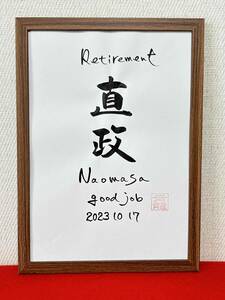 Retirement
直政
Naomasa
good job
2023 10 17